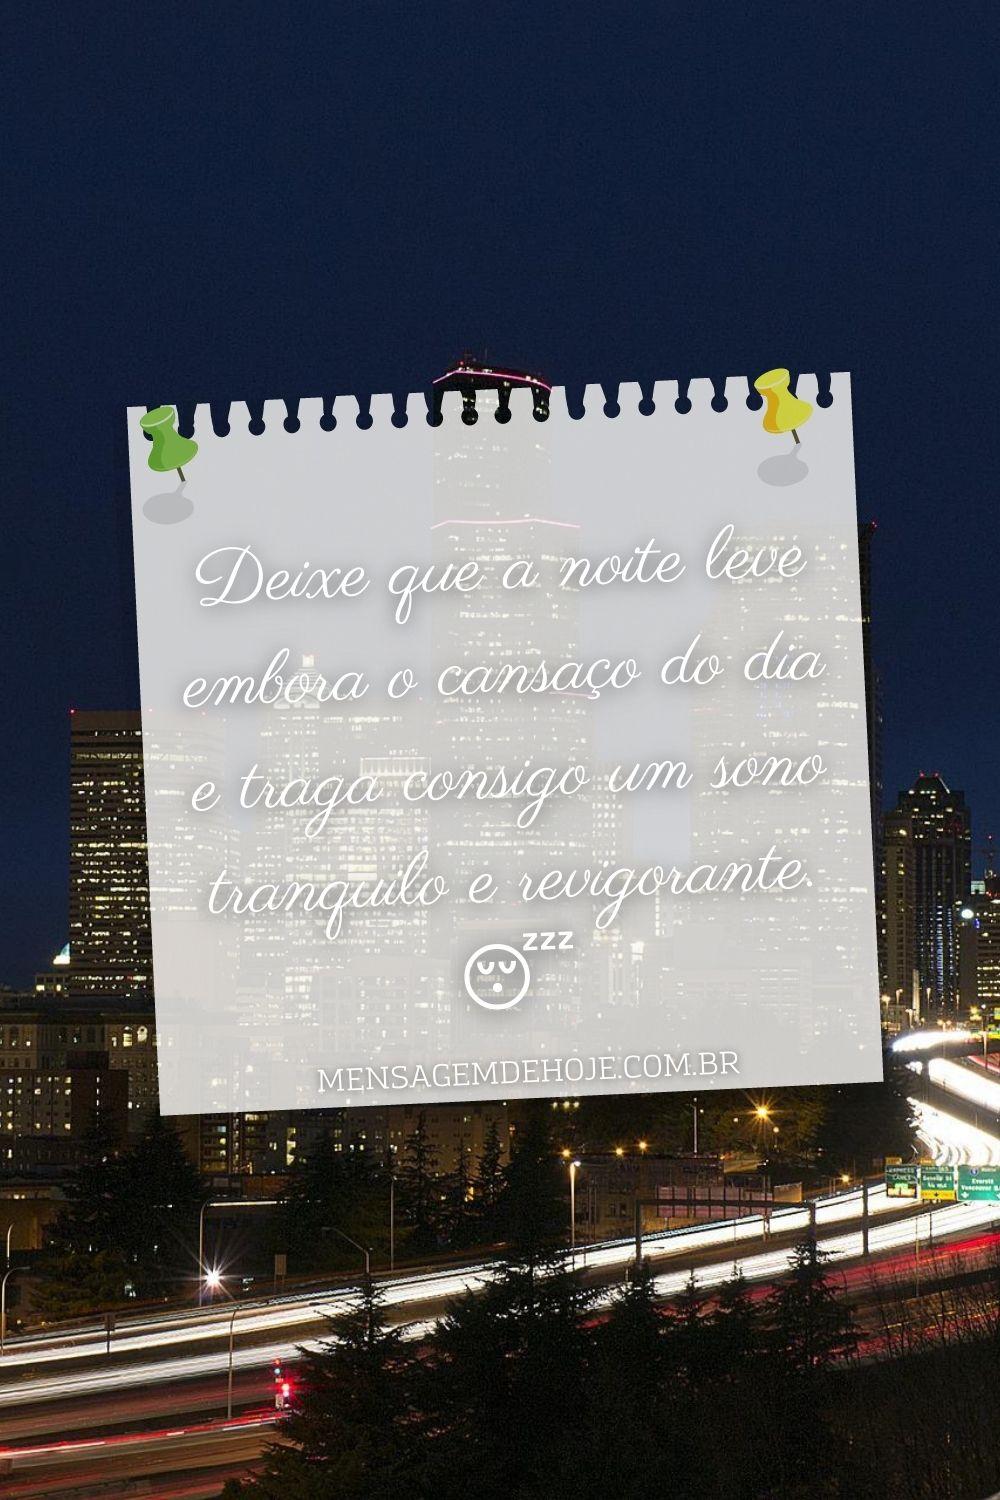 Deixe que a noite leve
embora o cansaço do dia
e traga consigo um sono
tranquilo e revigorante.
zzz
MENSAGEMDEHOJE.COM.BR
EXPRESS
LANES
Everett
Vancouver